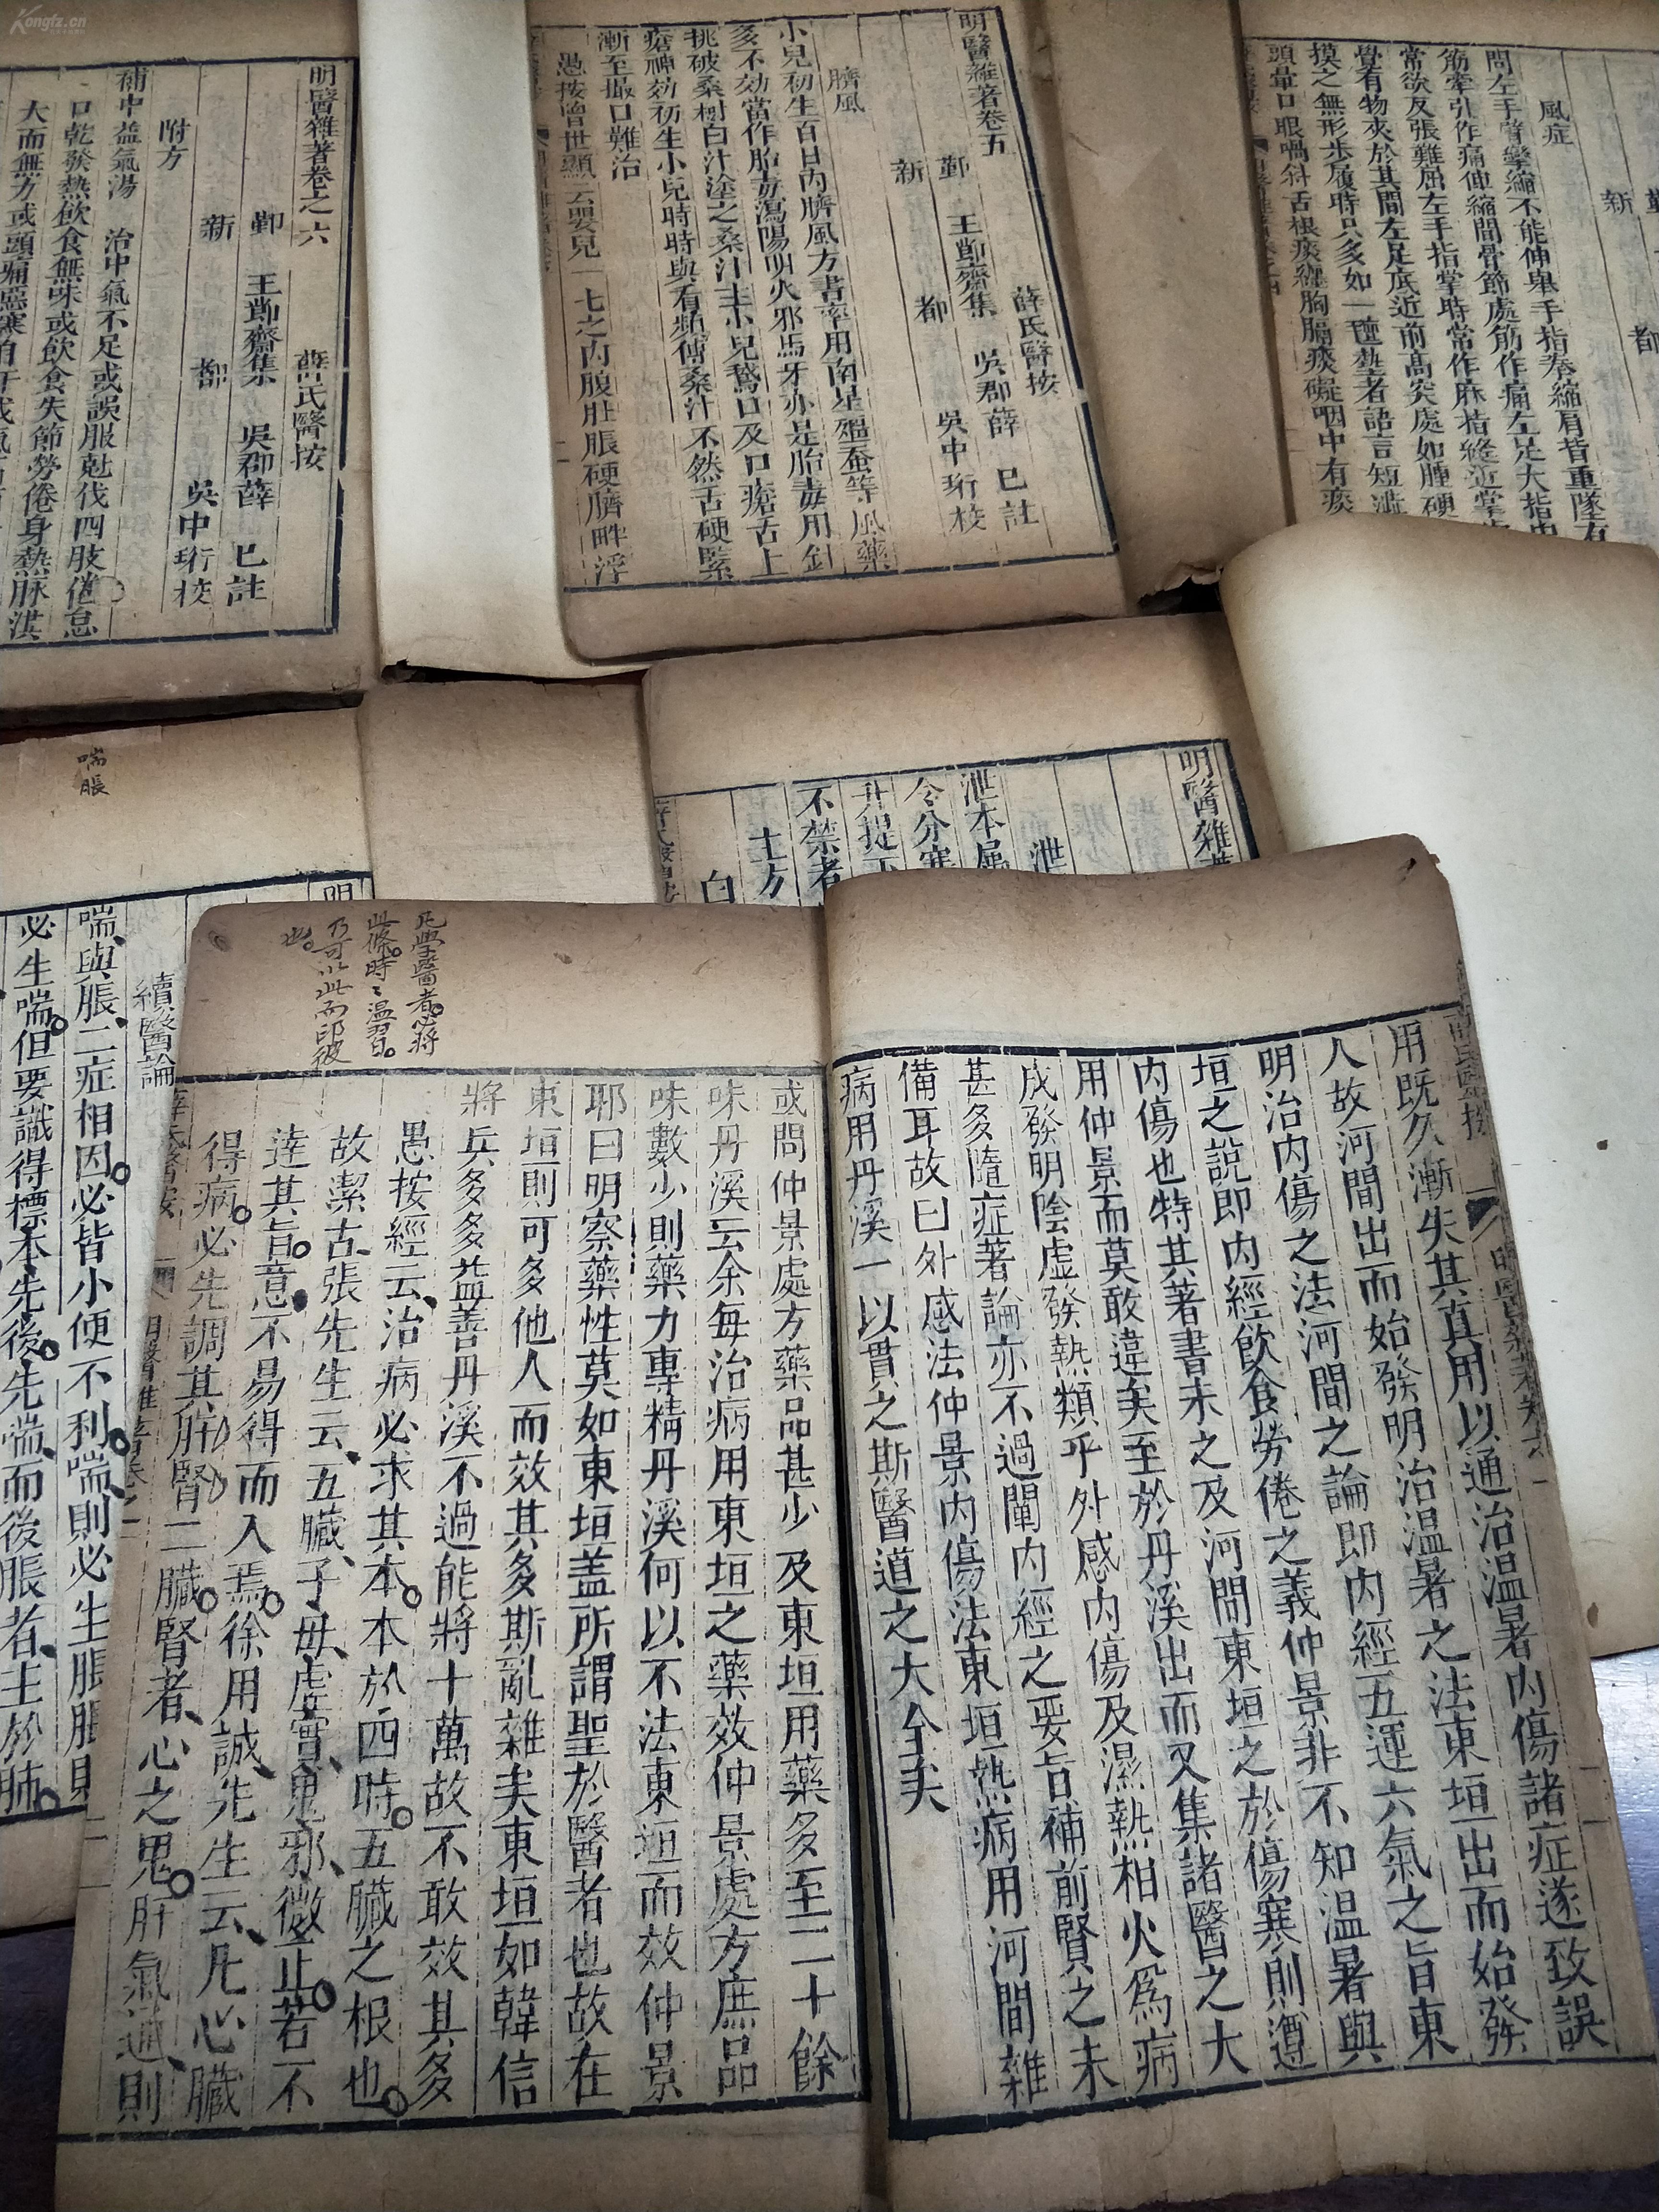 Kongfz.cn
明醫雜著卷之六
薛氏醫按
鄞 王節齋集 吳郡薛 已註
新 都 吳中珩校
附方
補中益氣湯 治中氣不足或誤服尅伐四肢倦怠
口乾發熱飲食無味或飲食失節勞倦身熱脉洪
大而無力或頭痛惡寒自汗
明醫雜著卷五
薛氏醫按
鄞 王節齋集 吳郡薛 已註
新 都 吳中珩校
臍風
小兒初生百日內臍風方書率用南星殭蚕等風藥
多不効當作胎毒瀉陽明火邪馬牙亦是胎毒用針
挑破桑樹白汁塗之桑汁主小兒鵝口及口瘡舌上
瘡神効初生小兒時時與看頻傅桑汁不然舌硬緊
漸至撮口難治
愚按曾世顯云嬰兒一七之內腹肚脹硬臍畔浮
新 都
風症
問左手臂攣縮不能伸舉手指拳縮肩背重墜有
筋牽引作痛伸縮間骨節處筋作痛左足大指
常欲反張難屈左手指掌時常作麻指縫近掌
覺有物夾於其間左足底近前髙突處如腫硬
摸之無形步履時只多如一
頭暈口眼喎斜舌根痰纏胸膈痰礙咽中有痰
喘脹
明
續醫論
喘與脹二症相因必皆小便不利喘則必生脹脹則
必生喘但要識得標本先後先喘而後脹者主於肺
明醫雜
泄
泄本屬
令分寒
升提下
不禁者
土方
白
用既久漸失其真用以通治温暑內傷諸症遂致誤
人故河間出而始發明治温暑之法東垣出而始發
明治內傷之法河間之論即內經五運六氣之旨東
垣之說即內經飲食勞倦之義仲景非不知温暑與
內傷也特其著書未之及河間東垣之於傷寒則遵
用仲景而莫敢違矣至於丹溪出而又集諸醫之大
成發明陰虛發熱類乎外感內傷及濕熱相火爲病
甚多隨症著論亦不過闡內經之要旨補前賢之未
備耳故曰外感法仲景內傷法東垣熱病用河間雜
病用丹溪一以貫之斯醫道之大全矣
凡學醫者必將
此條時時温習
乃可以此而印彼
也
或問仲景處方藥品甚少及東垣用藥多至二十餘
味丹溪云余每治病用東垣之藥效仲景處方庶品
味數少則藥力專精丹溪何以不法東垣而效仲景
耶曰明察藥性莫如東垣盖所謂聖於醫者也故在
東垣則可多他人而效其多斯亂雜矣東垣如韓信
將兵多多益善丹溪不過能將十萬故不敢效其多
愚按經云治病必求其本本於四時五臟之根也
故潔古張先生云五臟子母虛實鬼邪微正若不
達其旨意不易得而入焉徐用誠先生云凡心臟
得病必先調其肝腎二臟腎者心之鬼肝氣通則